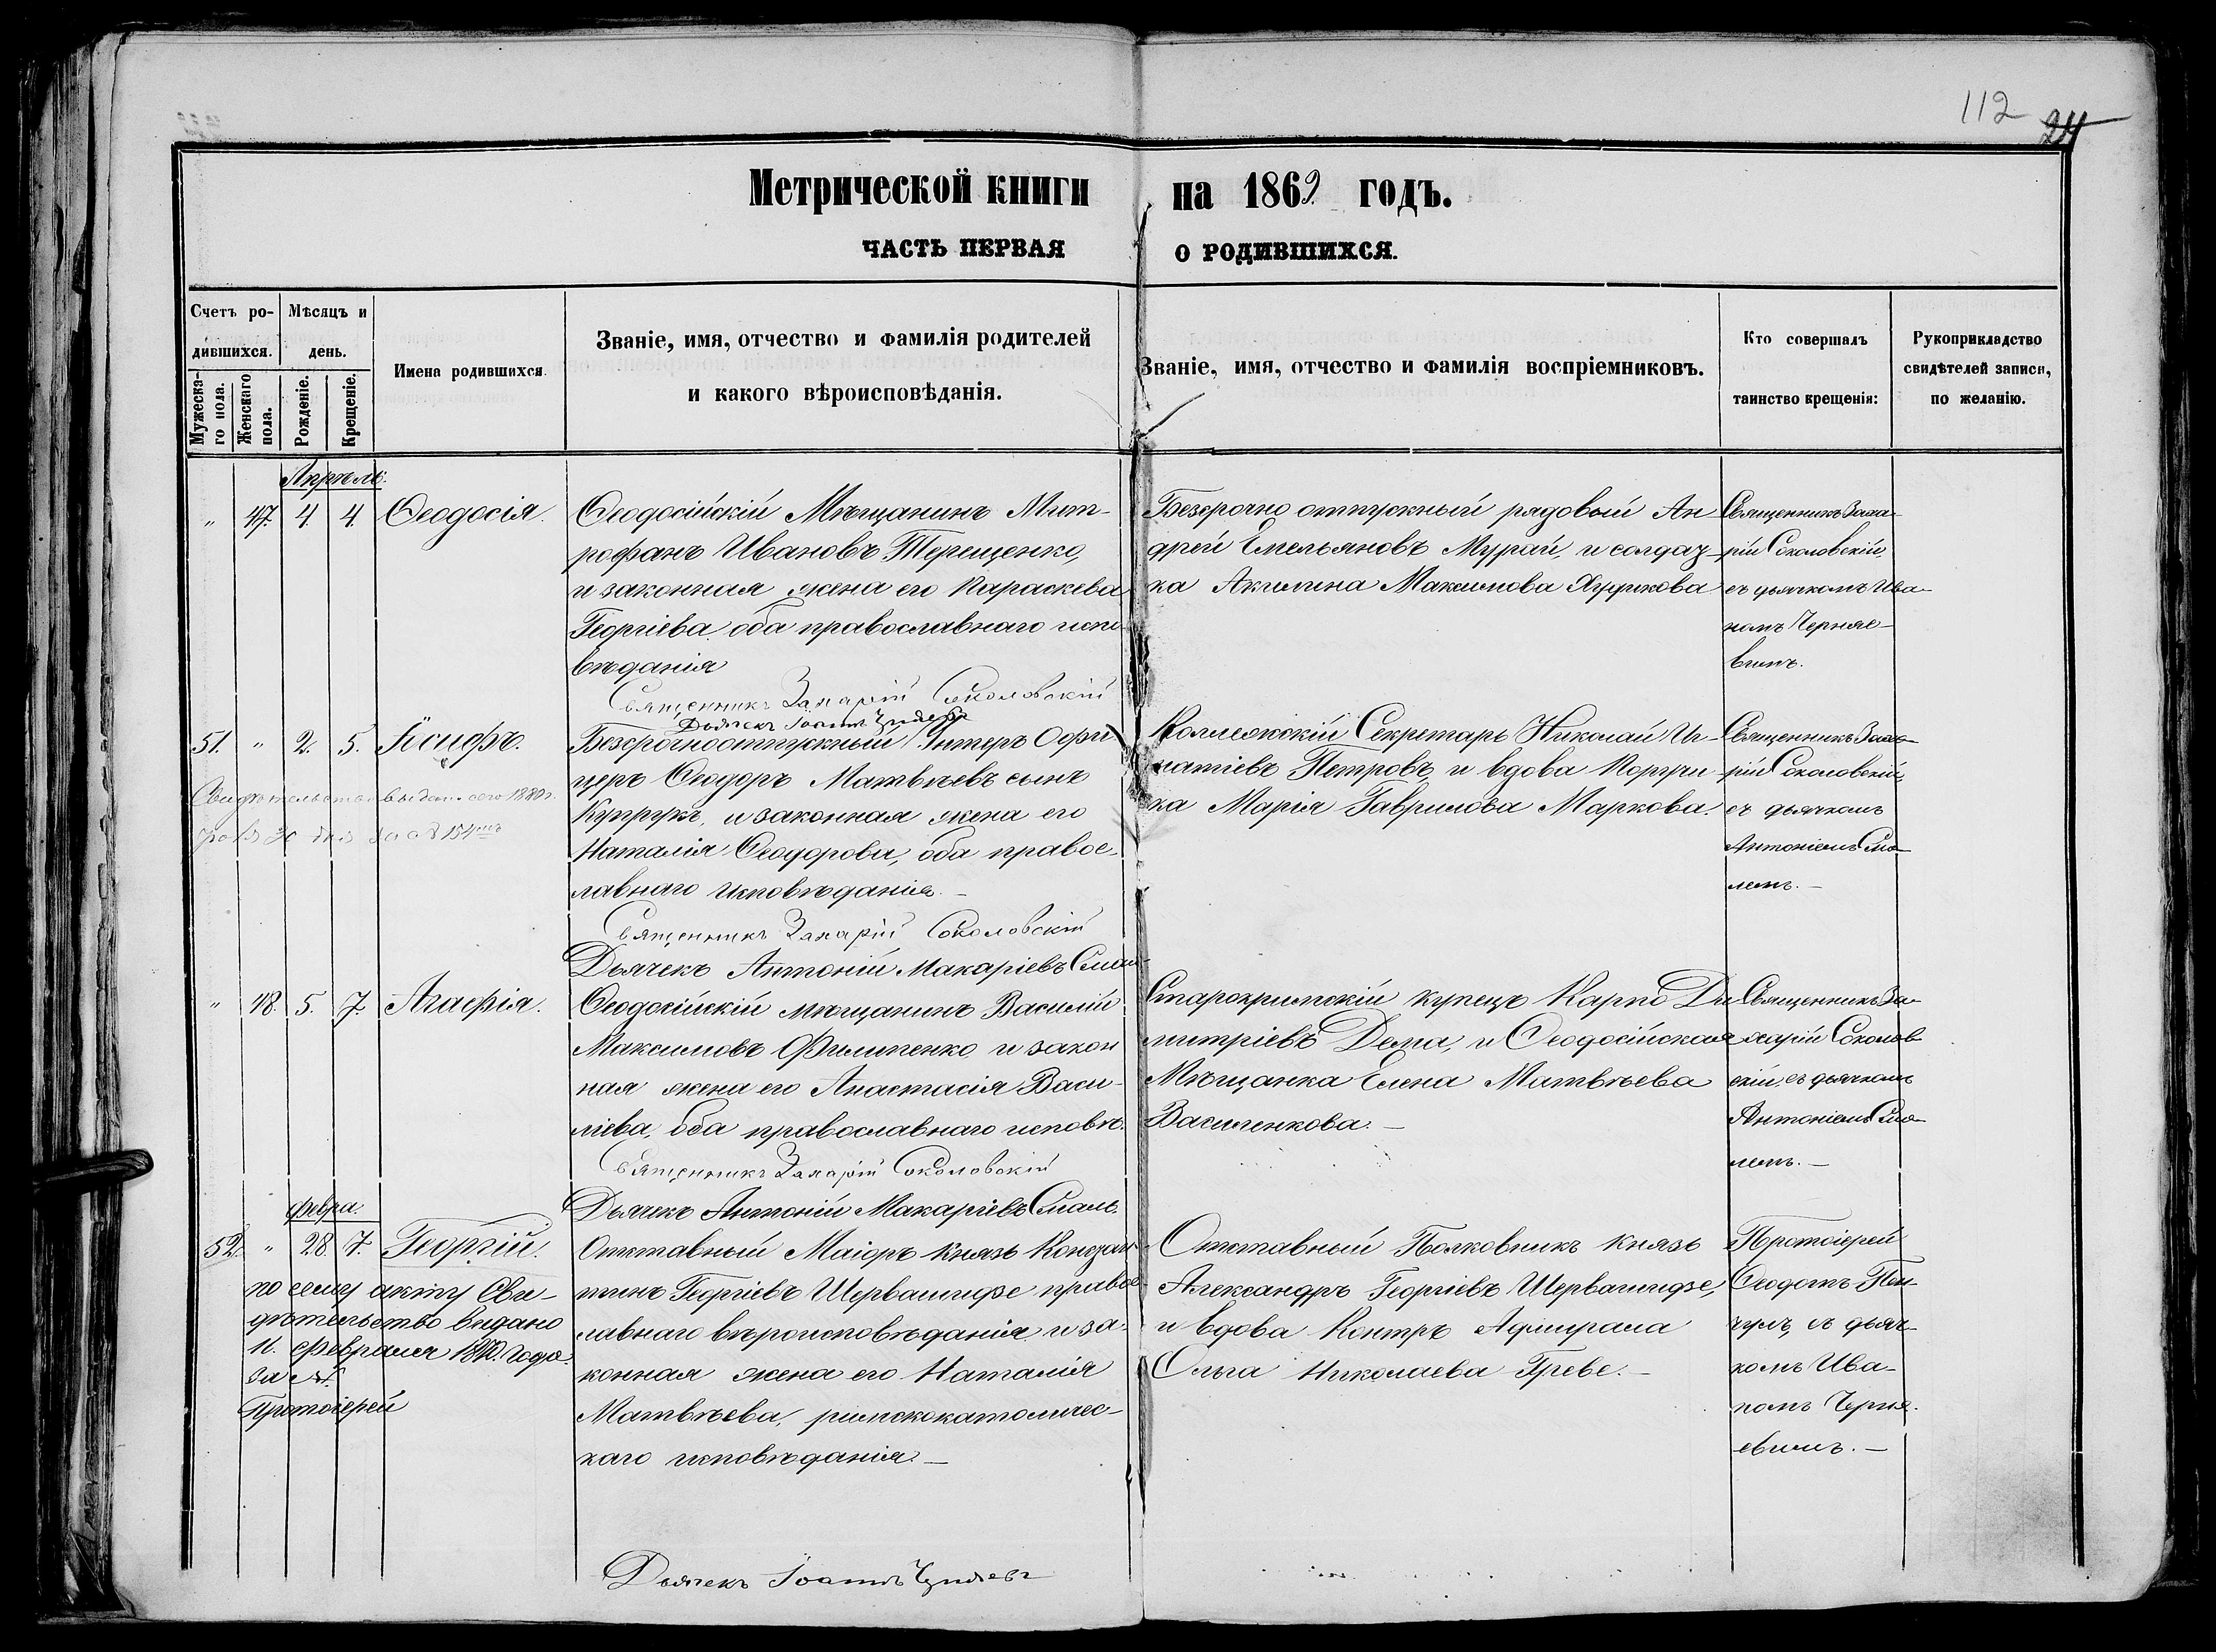 112
24
Метрической книги на 1869 годъ.
ЧАСТЬ ПЕРВАЯ О РОДИВШИХСЯ.
Счетъ ро-
дившихся.
Мужеска-
го пола.
Женскаго
пола.
Мѣсяцъ и
день.
Рожденіе.
Крещеніе.
Имена родившихся.
Званіе, имя, отчество и фамилія родителей
и какого вѣроисповѣданія.
Званіе, имя, отчество и фамилія воспріемниковъ.
Кто совершалъ
таинство крещенія:
Рукоприкладство
свидѣтелей записи,
по желанію.
Апрѣль.
" 47. 4 4 Ѳеодосія.
Ѳеодосійскій Мѣщанинъ Мит-
рофанъ Ивановъ Терещенко,
и законная жена его Параскева
Георгіева оба православнаго испо-
вѣданія
Священникъ Захарій Соколовскій
Дьячекъ Іоаннъ
Безсрочно отпускный рядовой Ан
дрей Емельяновъ Мурай, и солдат-
ка Акилина Максимова
Священникъ Заха-
рій Соколовскій,
съ дьячкомъ Ива-
номъ Черняе-
вымъ.
51. " 2. 5. Іосифъ.
Безсрочноотпускный Унтеръ Офи-
церъ Ѳеодоръ Матвѣевъ сынъ
и законная жена его
Наталія Ѳеодорова, оба правос-
лавнаго исповѣданія. —
Священникъ Захарій Соколовскій
Дьячекъ Антоній Макаріевъ Смаль
Коллежскій Секретарь Николай Иг-
натіевъ Петровъ, и вдова Поручи-
ка Марія Гаврилова Маркова.
Священникъ Заха-
рій Соколовскій,
съ дьячкомъ
Антоніемъ Сма-
лемъ. —
Свидѣтельство выдано 1880 г.
" 48. 5. 7. Агафія.
Ѳеодосійскій мѣщанинъ Василій
Максимовъ Филипенко и закон
ная жена его Анастасія Васи-
ліева, оба православнаго исповѣ.
Священникъ Захарій Соколовскій
Дьячекъ Антоній Макаріевъ Смаль.
Старокрымскій купецъ Карпъ Ди
митріевъ Дема, и Ѳеодосійская
Мѣщанка Елена Матвѣева
Василенкова. —
Священникъ За-
харій Соколов
скій, съ дьячкомъ
Антоніемъ Сма-
лемъ. —
Февра.
52. " 28. 7. Георгій.
по сему акту Сви-
дѣтельство выдано
11. Февраля года.
за №
Протоіерей
Отставный Маіоръ Князь Констан-
тинъ Георгіевъ Шервашидзе правос
лавнаго вѣроисповѣданія и за-
конная жена его Наталія
Матвѣева, римскокатоличес-
каго исповѣданія. —
Дьячекъ Іоаннъ
Отставный Полковникъ Князь
Александръ Георгіевъ Шервашидзе,
и вдова Контръ Адмирала
Ольга Николаева Греве. —
Протоіерей
Ѳеодотъ
съ дьяч-
комъ Ива-
номъ Черня-
евымъ. —